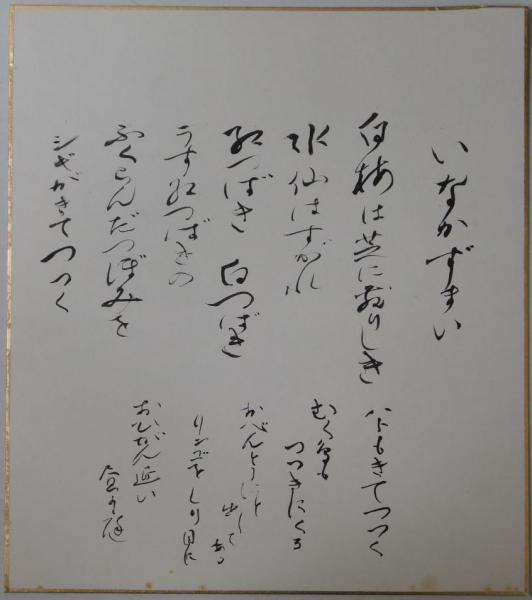 いなかずまい
白梅は芝に散りしき
水仙はすがれ
紅つばき 白つばき
うす紅つばきの
ふくらんだつぼみを
シギがきてつつく
ハトもきてつつく
むく鳥も
つつきにくる
おべんとうにと
出してある
リンゴを しり目に
おひがん近い
昼の庭